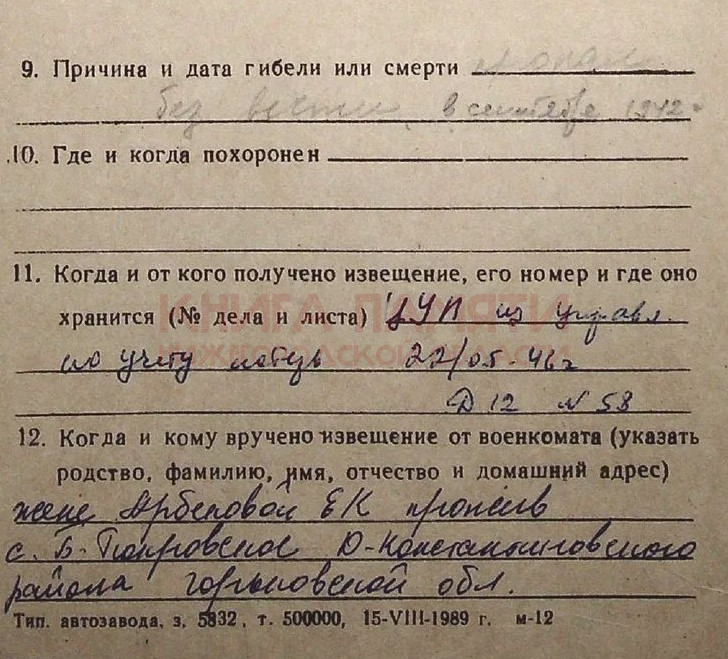 9. Причина и дата гибели или смерти пропал
без вести в сентябре 1942 г
10. Где и когда похоронен
11. Когда и от кого получено извещение, его номер и где оно
КНИГА ПАМЯТИ
хранится (№ дела и листа) из управл.
НИЖЕГОРОДСКОЙ ОБЛАСТИ
по учету потерь 22/05-46г
Д 12 N 58
12. Когда и кому вручено извещение от военкомата (указать
родство, фамилию, имя, отчество и домашний адрес)
жене ЕК прожив
с. Д-Константиновского
района Горьковской обл.
Тип. автозавода, з. 5832, т. 500000, 15-VIII-1989 г. м-12